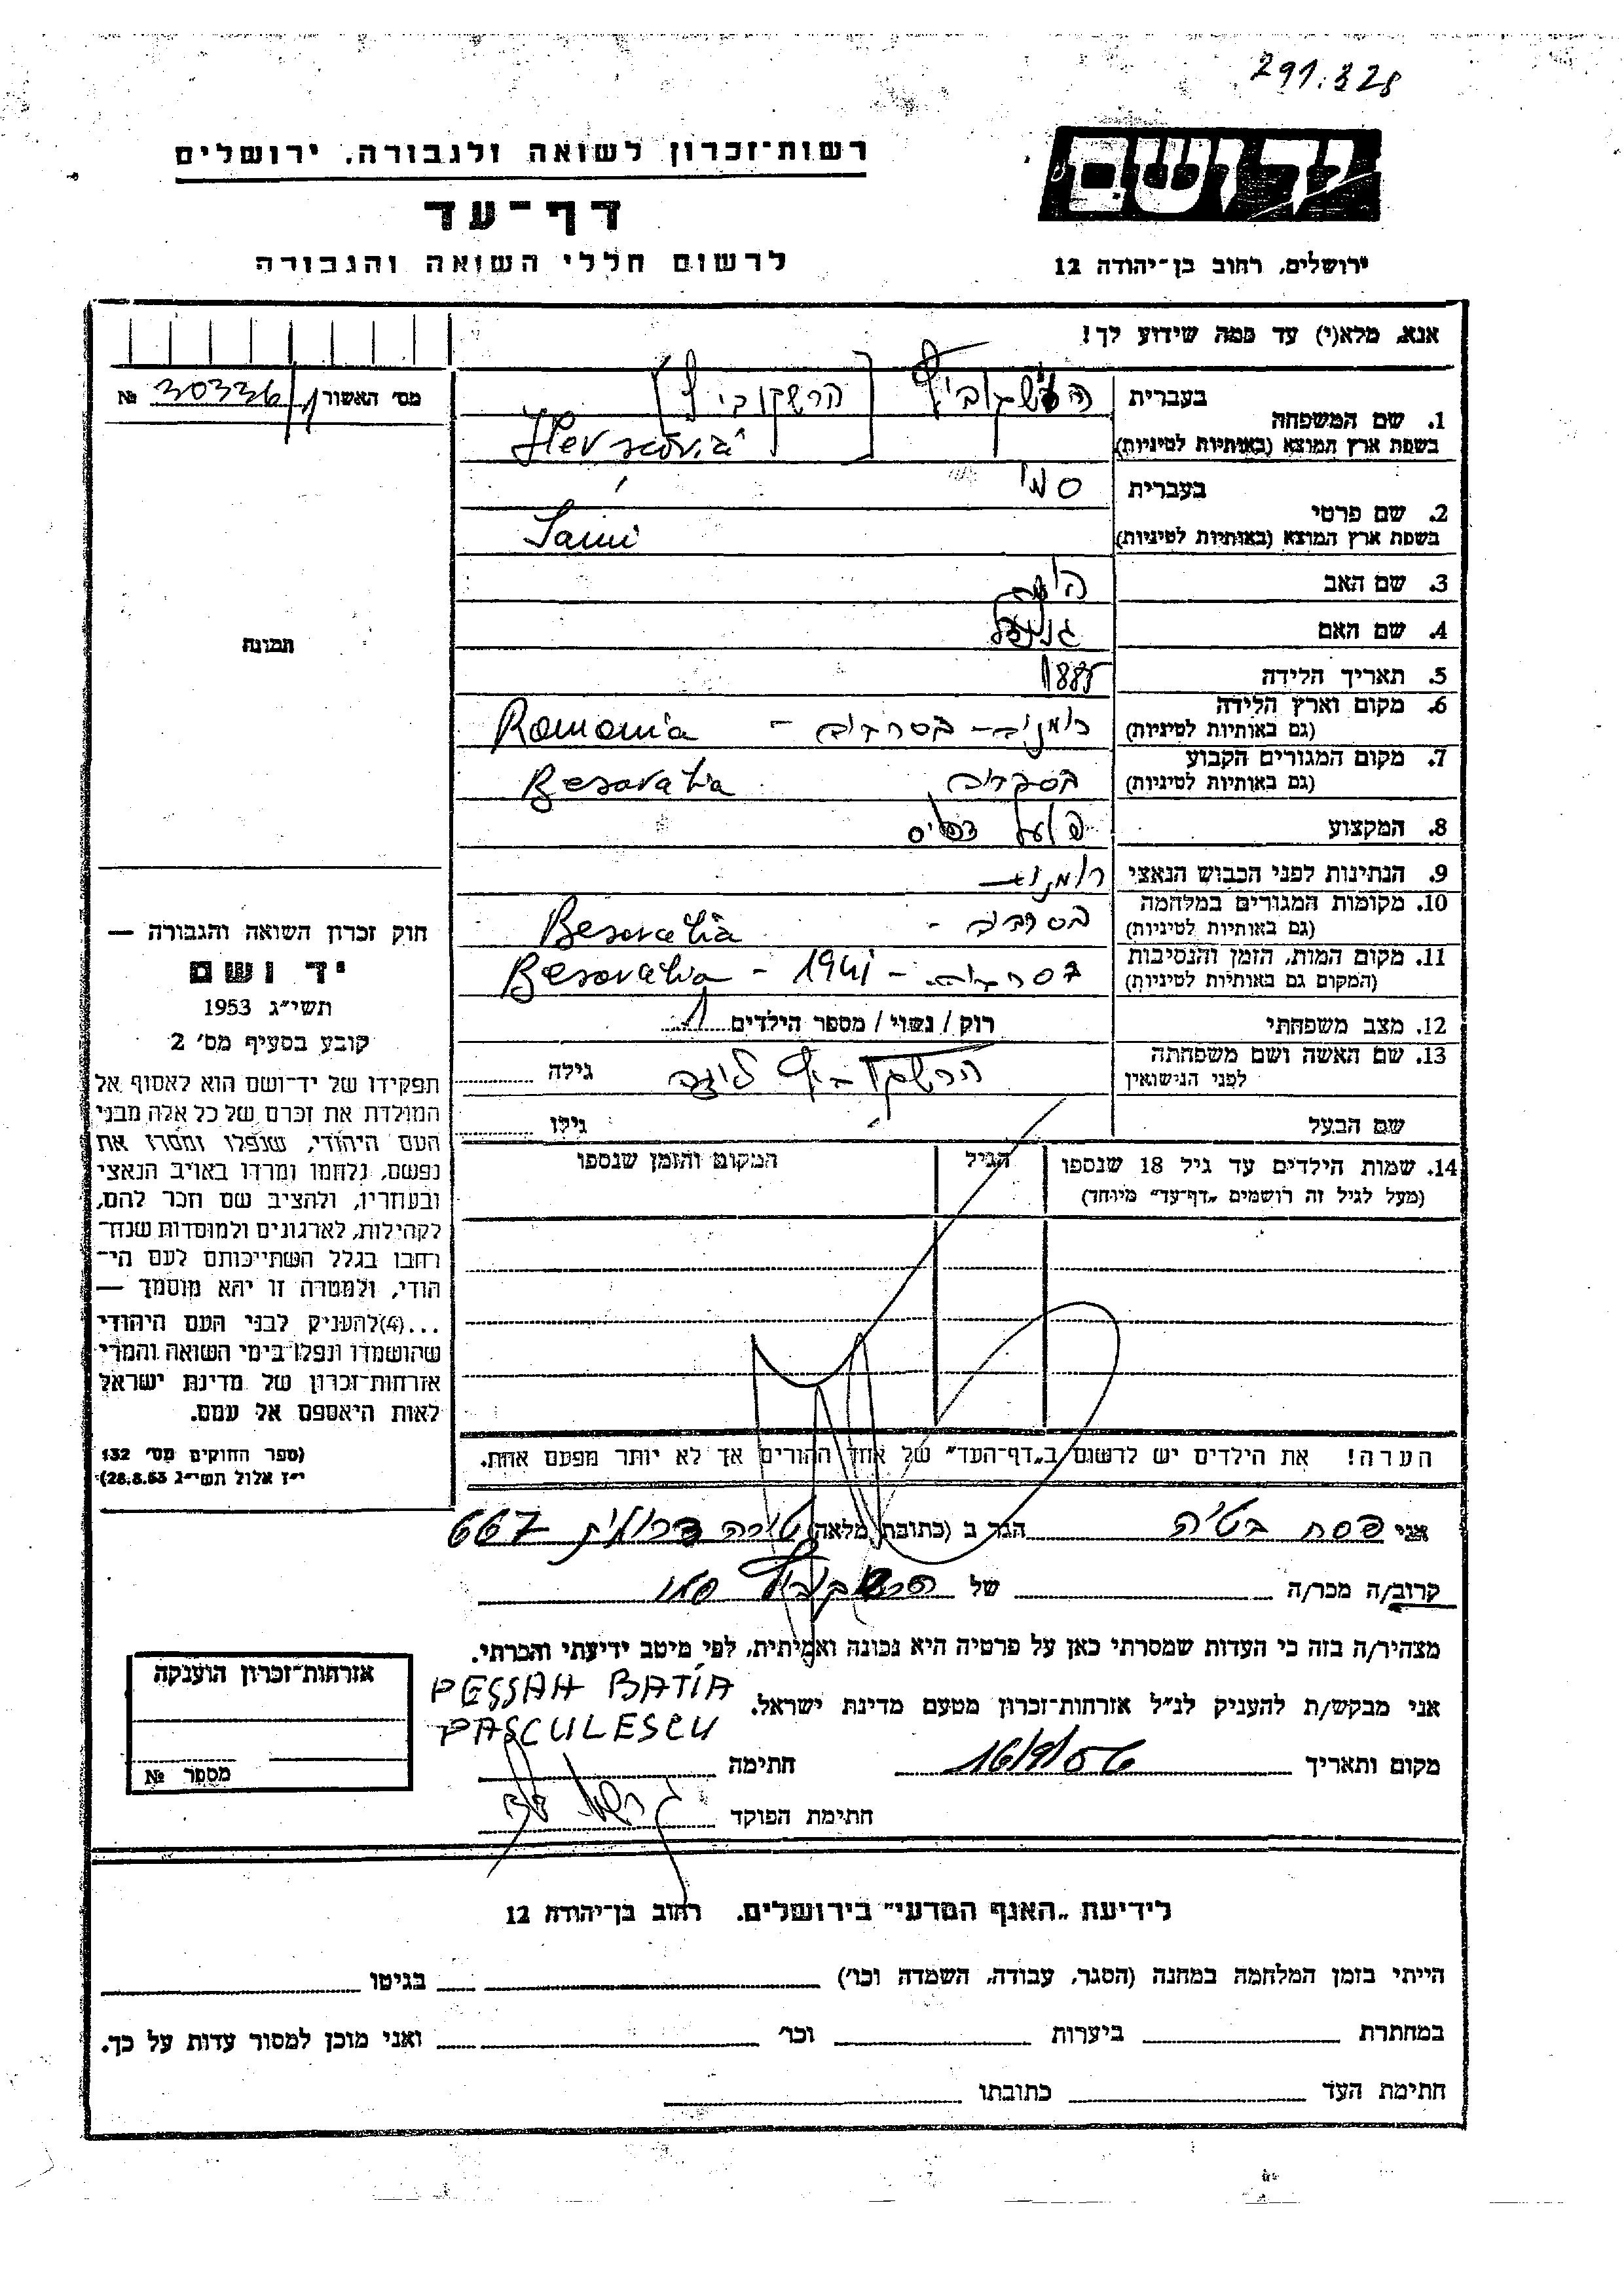 291.328
יד ושם
רשות־זכרון לשואה ולגבורה, ירושלים
דף־עד
לרשום חללי השואה והגבורה
ירושלים, רחוב בן־יהודה 12
אנא, מלא(י) עד כמה שידוע לך!
מס' האשור № 30336/1
1. שם המשפחה
בעברית [הרשקוביץ]
בשפת ארץ המוצא (באותיות לטיניות)
2. שם פרטי
בעברית סמי
בשפת ארץ המוצא (באותיות לטיניות) Sami
3. שם האב
4. שם האם
5. תאריך הלידה 1885
6. מקום וארץ הלידה
(גם באותיות לטיניות) רומניה - בסרביה - Romania
7. מקום המגורים הקבוע
(גם באותיות לטיניות) בסרביה Besarabia
8. המקצוע פועל
9. הנתינות לפני הכבוש הנאצי רומנית
10. מקומות המגורים במלחמה
(גם באותיות לטיניות) בסרביה - Besarabia
11. מקום המות, הזמן והנסיבות
(המקום גם באותיות לטיניות) בסרביה - 1941 - Besarabia
12. מצב משפחתי רוק / נשוי / מספר הילדים 1
13. שם האשה ושם משפחתה
לפני הנישואין הרשקוביץ גילה
שם הבעל גילו
14. שמות הילדים עד גיל 18 שנספו
(מעל לגיל זה רושמים „דף־עד" מיוחד)
הגיל
המקום והזמן שנספו
הערה! את הילדים יש לרשום ב„דף־העד" של אחד ההורים אך לא יותר מפעם אחת.
תמונה
חוק זכרון השואה והגבורה —
יד ושם
תשי"ג 1953
קובע בסעיף מס' 2
תפקידו של יד־ושם הוא לאסוף אל
המולדת את זכרם של כל אלה מבני
העם היהודי, שנפלו ומסרו את
נפשם, נלחמו ומרדו באויב הנאצי
ובעוזריו, ולהציב שם וזכר להם,
לקהילות, לארגונים ולמוסדות שנח־
רבו בגלל השתייכותם לעם הי־
הודי, ולמטרה זו יהא מוסמך —
...(4)להעניק לבני העם היהודי
שהושמדו ונפלו בימי השואה והמרי
אזרחות־זכרון של מדינת ישראל
לאות היאספם אל עמם.
(ספר החוקים מס' 132
י"ז אלול תשי"ג 28.8.53)
אני פסח בטיה הגר ב (כתובת מלאה) טירה 667
קרוב/ה מכר/ה של הרשקוביץ סמי
מצהיר/ה בזה כי העדות שמסרתי כאן על פרטיה היא נכונה ואמיתית, לפי מיטב ידיעתי והכרתי.
אני מבקש/ת להעניק לנ"ל אזרחות־זכרון מטעם מדינת ישראל.
PESSAH BATIA
PASCULESCU
מקום ותאריך 16/9/56 חתימה
חתימת הפוקד
אזרחות־זכרון הוענקה
מספר №
לידיעת „האגף המדעי" בירושלים, רחוב בן־יהודה 12
הייתי בזמן המלחמה במחנה (הסגר, עבודה, השמדה וכו') בגיטו
במחתרת ביערות וכו' ואני מוכן למסור עדות על כך.
חתימת העד כתובתו